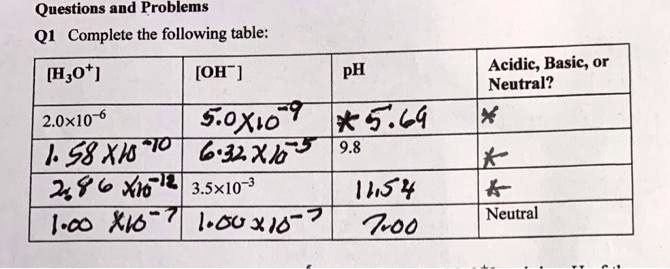 Questions and Problems
Q1 Complete the following table:
[H₃O⁺] [OH⁻] pH Acidic, Basic, or Neutral?
2.0×10⁻⁶ 5.0×10⁻⁹ * 5.69 *
1.58 ×10⁻¹⁰ 6.32 ×10⁻⁵ 9.8 *
2.86 ×10⁻¹² 3.5×10⁻³ 11.54 *
1.00 ×10⁻⁷ 1.00 ×10⁻⁷ 7.00 Neutral